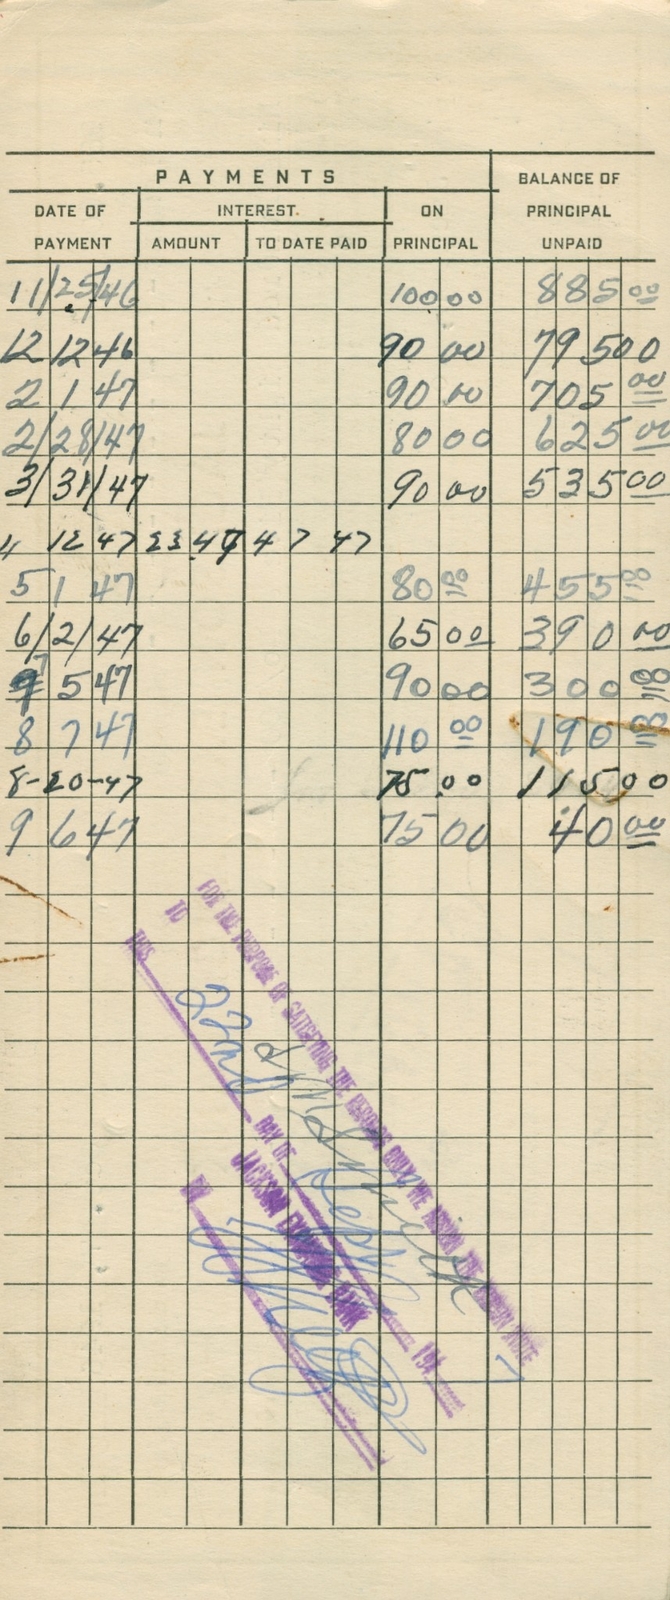 PAYMENTS BALANCE OF
DATE OF INTEREST. ON PRINCIPAL
PAYMENT AMOUNT TO DATE PAID PRINCIPAL UNPAID
11/25/46 100 00 885 00
12 12 46 90 00 795 00
2 1 47 90 00 705 00
2/28/47 80 00 625 00
3/31/47 90 00 535 00
4 12 47 23 47 4 7 47
5 1 47 80 00 455 00
6/2/47 65 00 390 00
7 5 47 90 00 300 00
8 7 47 110 00 190 00
8-20-47 75 00 115 00
9 6 47 75 00 40 00
FOR THE PURPOSE OF SATISFYING THE RECORDS ONLY, WE ASSIGN THE WITHIN NOTE
TO
THIS 22nd DAY OF Sept 194 7
JACKSON EXCHANGE BANK
BY